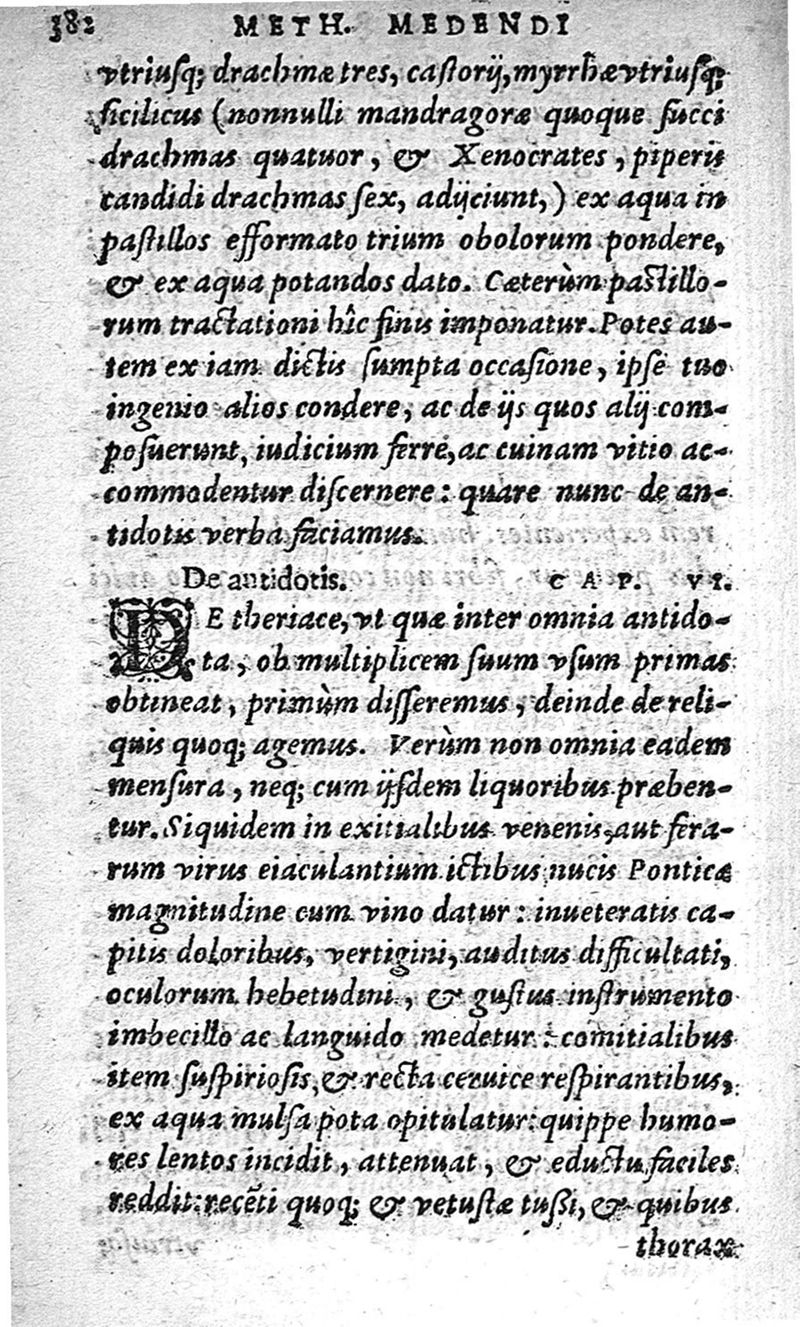 382 METH. MEDENDI
vtriuſq; drachmæ tres, caſtorij, myrrhæ vtriuſq;
ſicilicus (nonnulli mandragoræ quoque ſucci
drachmas quatuor, & Xenocrates, piperis
candidi drachmas ſex, adijciunt,) ex aqua in
paſtillos efformato trium obolorum pondere,
& ex aqua potandos dato. Cæterùm paſtillo-
rum tractationi hîc finis imponatur. Potes au-
tem ex iam dictis ſumpta occaſione, ipſe tuo
ingenio alios condere, ac de ijs quos alij com-
poſuerunt, iudicium ferre, ac cuinam vitio ac-
commodentur diſcernere: quare nunc de an-
tidotis verba faciamus.
De antidotis. CAP. VI.
DE theriace, vt quæ inter omnia antido-
ta, ob multiplicem ſuum vſum primas
obtineat, primùm diſſeremus, deinde de reli-
quis quoq; agemus. Verùm non omnia eadem
menſura, neq; cum ijſdem liquoribus præben-
tur. Siquidem in exitialibus venenis, aut fera-
rum virus eiaculantium ictibus nucis Ponticæ
magnitudine cum vino datur: inueteratis ca-
pitis doloribus, vertigini, auditus difficultati,
oculorum hebetudini, & guſtus inſtrumento
imbecillo ac languido medetur: comitialibus
item ſuſpirioſis, & recta ceruice reſpirantibus,
ex aqua mulſa pota opitulatur: quippe humo-
res lentos incidit, attenuat, & eductu faciles
reddit: recẽti quoq; & vetuſtæ tuſsi, & quibus
thorax